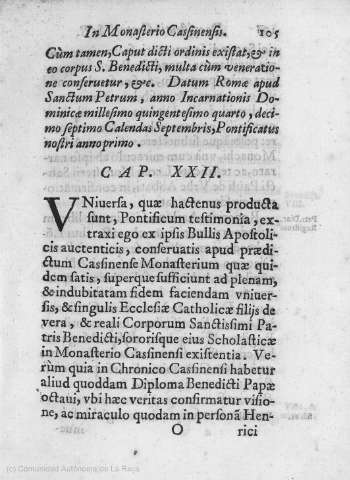 In Monasterio Cassinensis. 105
Cùm tamen, Caput dicti ordinis existat, & in
eo corpus S. Benedicti, multa cùm veneratio-
ne conseruetur, &c. Datum Romæ apud
Sanctum Petrum, anno Incarnationis Do-
minicæ millesimo quingentesimo quarto, deci
mo septimo Calendas Septembris, Pontificatus
nostri anno primo.
CAP. XXII.
VNiuersa, quæ hactenus producta
sunt, Pontificum testimonia, ex-
traxi ego ex ipsis Bullis Apostoli-
cis auctenticis, conseruatis apud prædi-
ctum Cassinense Monasterium quæ qui-
dem satis, superque sufficiunt ad plenam,
& indubitatam fidem faciendam vniuer-
sis, & singulis Ecclesiæ Catholicæ filijs de
vera, & reali Corporum Sanctissimi Pa-
tris Benedicti, sororisque eius Scholasticæ
in Monasterio Cassinensi existentia. Ve-
rùm quia in Chronico Cassinensi habetur
aliud quoddam Diploma Benedicti Papæ
octaui, vbi hæc veritas confirmatur visio-
ne, ac miraculo quodam in personâ Hen-
O rici
(c) Comunidad Autónoma de La Rioja